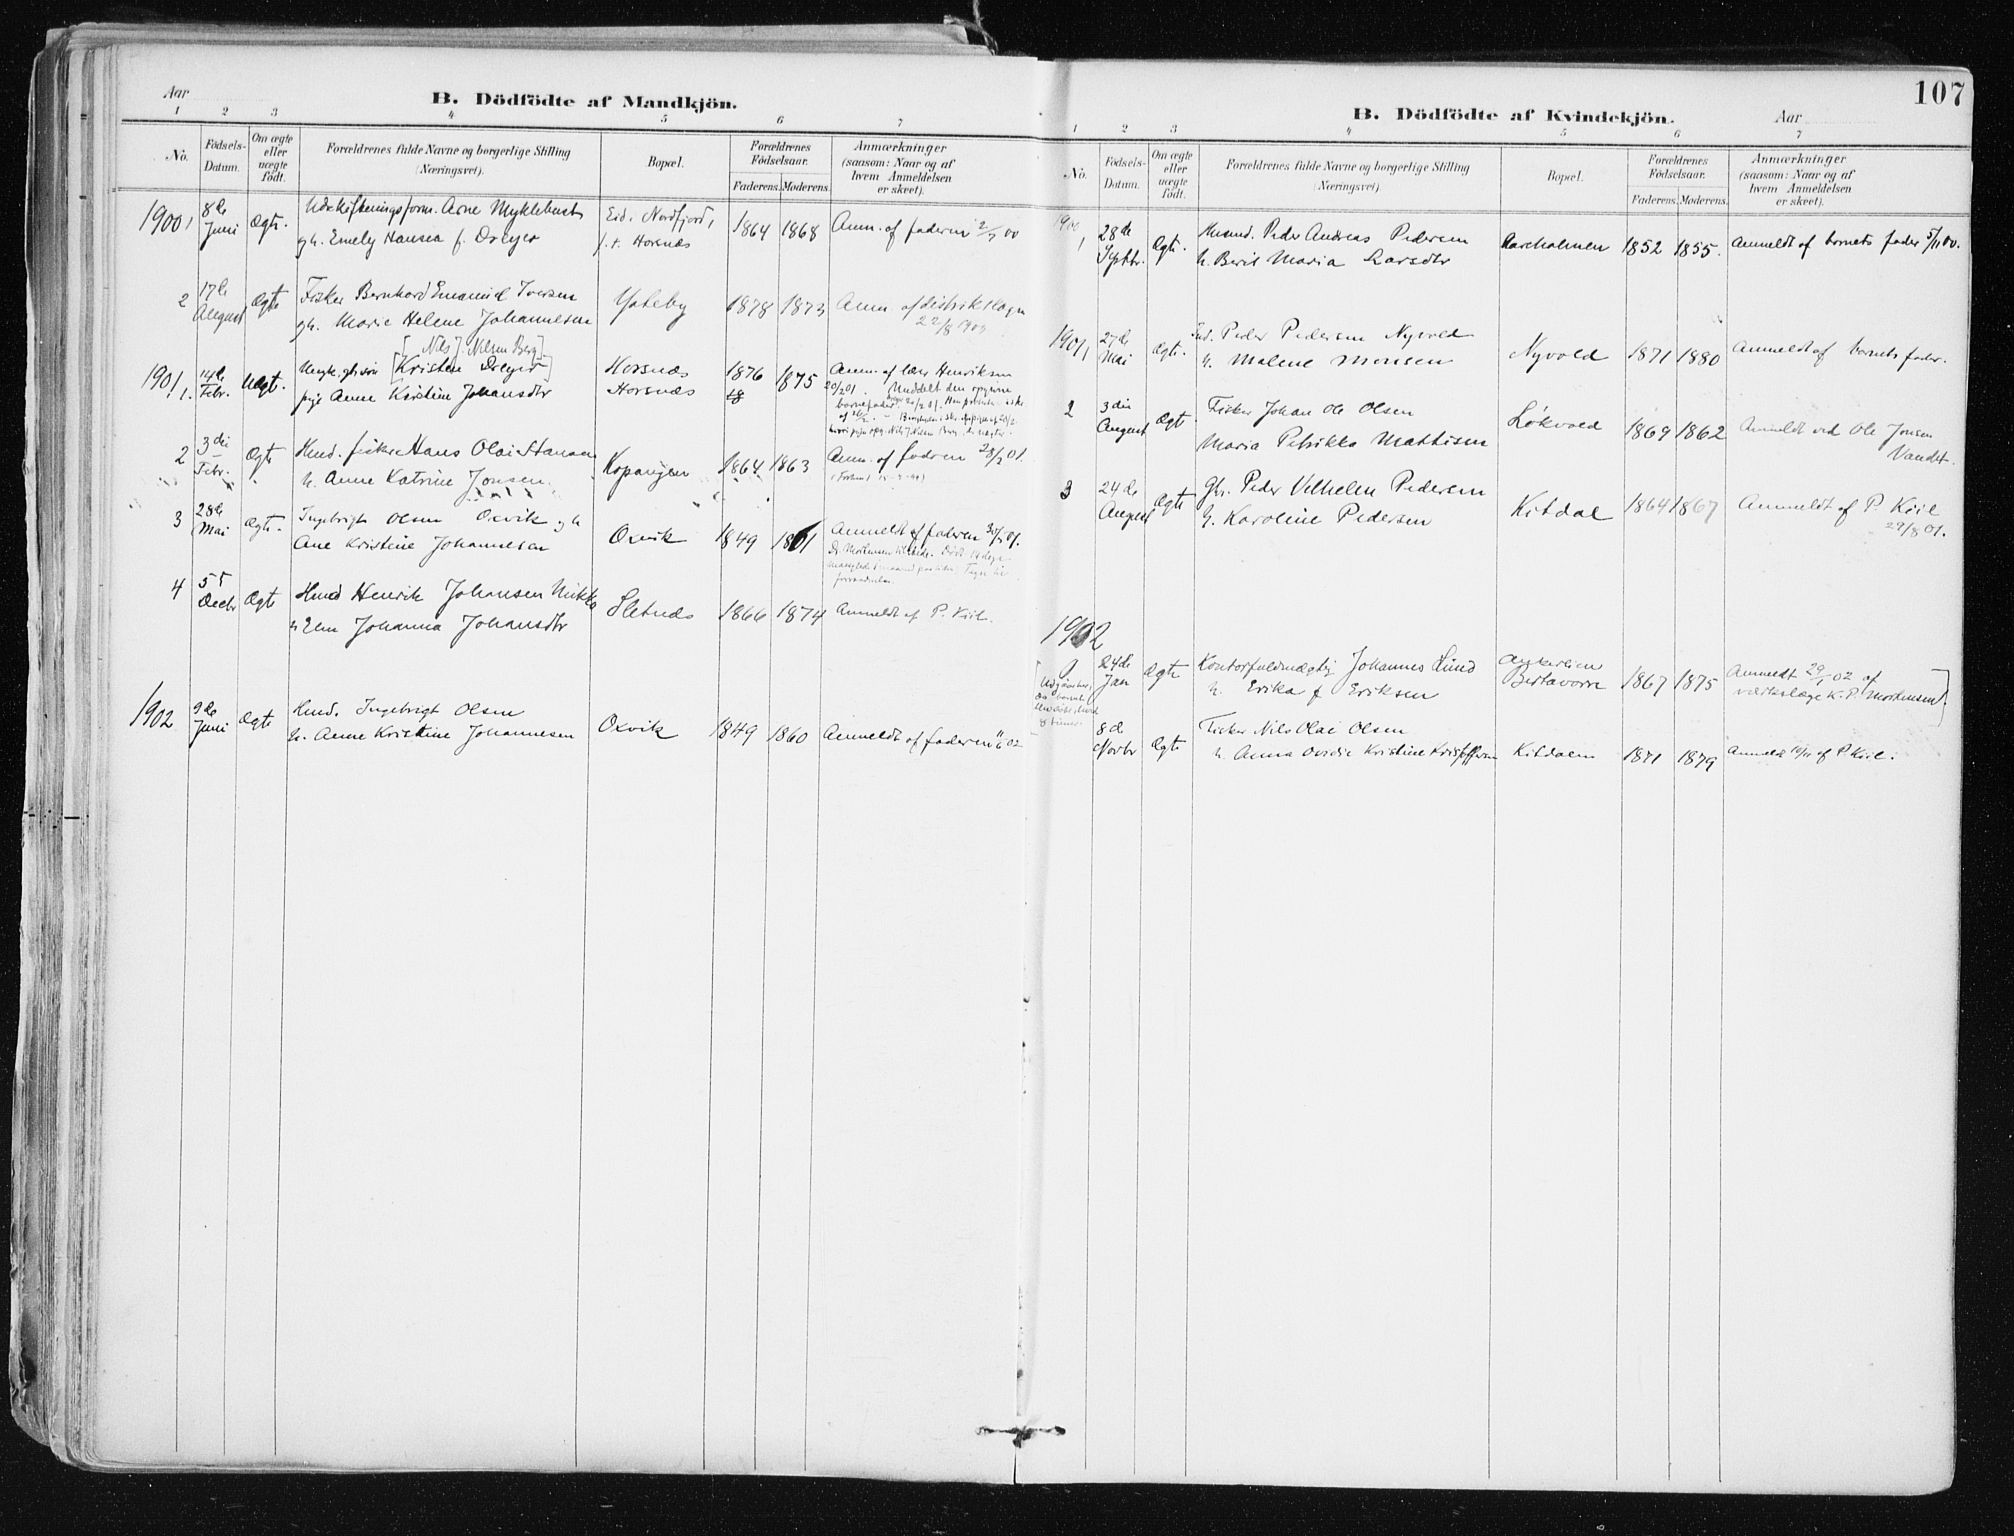 Aar
B. Dödfödte af Mandkjön.
1 2 3 4 5 6 7
No.
Födsels-
Datum.
Om ægte
eller
uægte
födt.
Forældrenes fulde Navne og borgerlige Stilling
(Næringsvei).
Bopæl.
Forældrenes
Födselsaar.
Faderens. Moderens.
Anmærkninger
(saasom: Naar og af
hvem Anmeldelsen
er skeet).
1900 1 8de Juni Ægte. Arne Myklebust Eid. Nordfjord, 1864 1868 Anm. af faderen 2/7 00
gh. Emely Hansea f. Dreyer f. t. Horsnæs
2 17de August Ægte Fisker Bernhard Emanuel Iversen 1878 1873 Anm. af
gh. Marie Helene Johannesen 22/8 1900
[Nils J. Nilsen Berg]
1901 1. 14de Febr. Uægte. [Kristen Dreyer] Horsnæs 1876 1875 Anm. af Henriksen
pige Anne Kristine Johansdtr Horsnæs 18 20/2 01.
2 3die Febr. Ægte Hmd. fisker Hans Olai Hansen Kopangen 1864 1863 Anm. af fadren 28/2 01.
h. Anne Katrine Jonsen
3 28de Mai Ægte. Ingebrigt Olsen Oxvik gh Oxvik 1849 1861 Anmeldt af faderen 01.
Ane Kristine Johannesen
4 5t Decbr Ægte Hmd Henrik Johansen Mikko Sletnæs 1866 1874 Anmeldt af P. Kiil.
h Johanna Johansdtr
1902 9de Juni Ægte Hmd. Ingebrigt Olsen Oxvik 1849 1860 Anmeldt af faderen 02
h. Anne Kristine Johannesen
107
B. Dödfödte af Kvindekjön.
Aar
1 2 3 4 5 6 7
No.
Födsels-
Datum.
Om ægte
eller
uægte
födt.
Forældrenes fulde Navne og borgerlige Stilling
(Næringsvei).
Bopæl.
Forældrenes
Födselsaar.
Faderens. Moderens.
Anmærkninger
(saasom: Naar og af
hvem Anmeldelsen
er skeet).
1900 1 28de Septbr. Ægte. Peder Andreas Pedersen Aarholmen 1852 1855. Anmeldt af barnets fader 5/11 00.
h. Berit Maria Larsdtr
1901 1 27de Mai Ægte. Peder Pedersen Nyvold Nyvold 1871 1880 Anmeldt af barnets fader.
h. Malene Monsen
2 3die August Ægte. Fisker Johan Ole Olsen Løkvold 1869 1862 Anmeldt ved Ole Jensen
Maria Petrikka Mathisen Vandet.
3 24de August Ægte Gbr. Peder Vilhelm Pedersen Kitdal 1864 1867 Anmeldt af P. Kiil
h. Karoline Pedersen 29/8 01.
1902
1 24de Jan Ægte Kontorfuldmægtig Johannes Lund Ankerlien 1867 1875 Anmeldt 29/1 02 af
h. Erika f Eriksen Birtavarre værkslæge K. P. Mortensen]
[Udgaar her,
8 timer.
8de Novbr Ægte Fisker Nils Olai Olsen
h. Anna Ovidie Kristine Kristoffersen Kitdalen 1871 1879 Anmeldt 10/11 af P. Kiil.